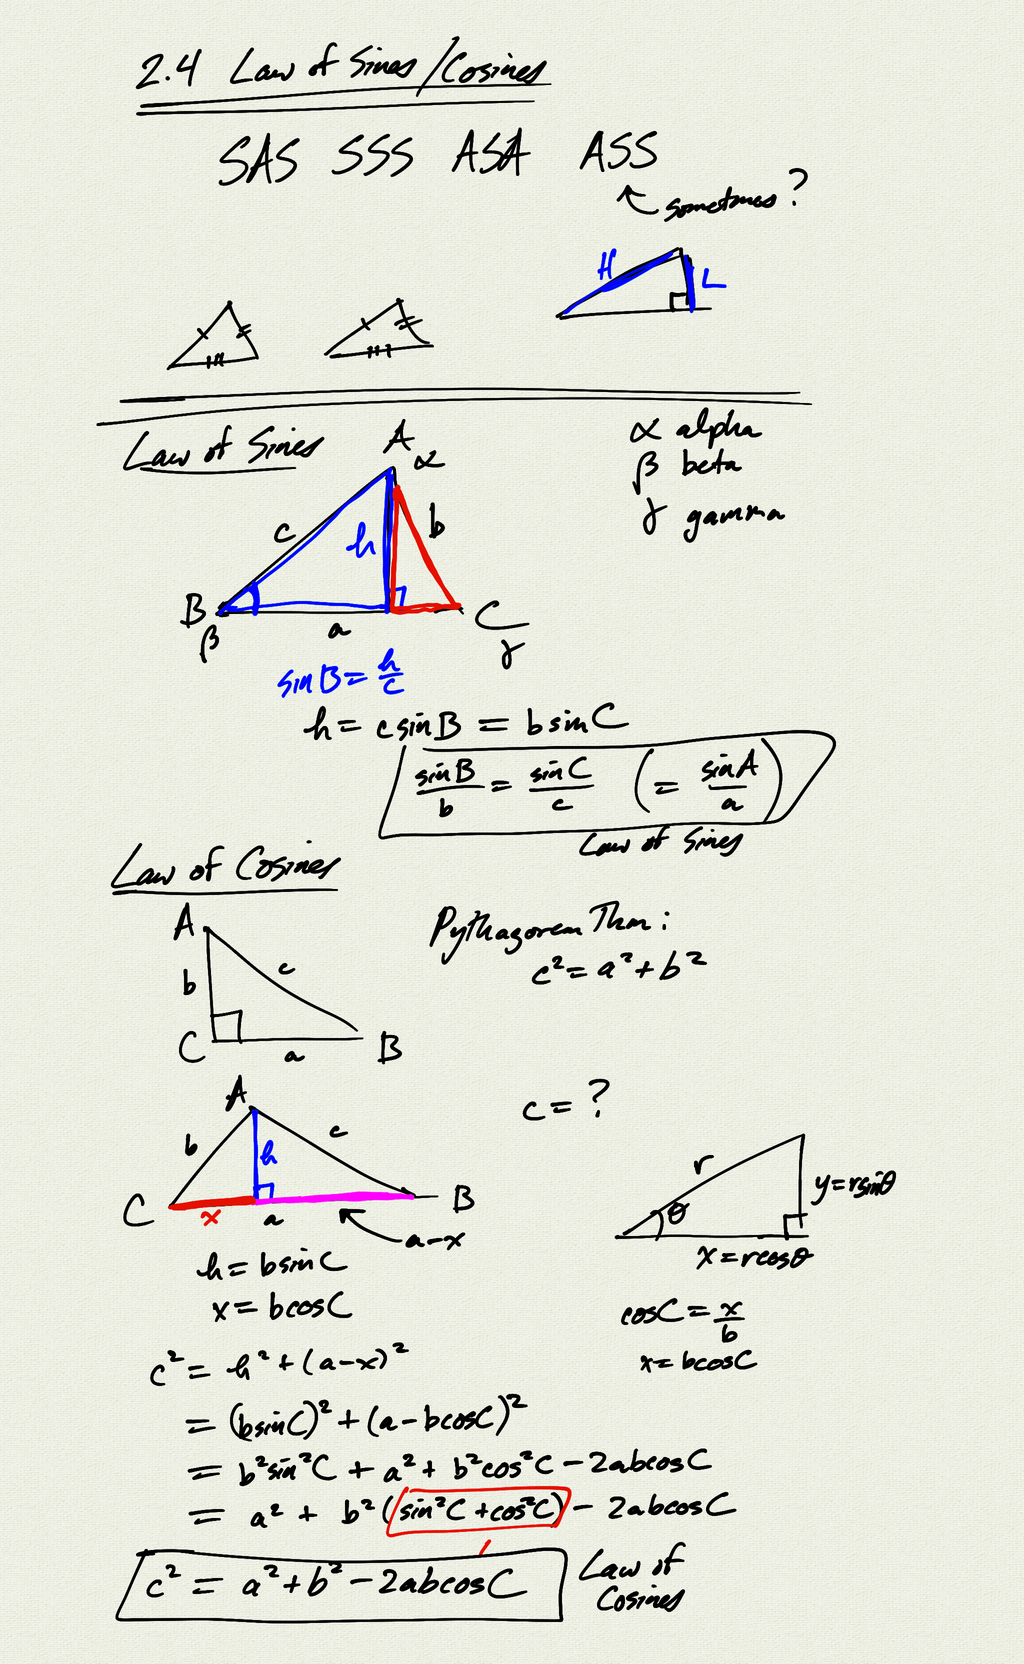 2.4 Law of Sines/Cosines
SAS SSS ASA ASS
sometimes?
H
L
Law of Sines
α alpha
β beta
γ gamma
A
α
c
h
b
B
β
a
C
γ
sinB = h/c
h = c sinB = b sinC
sinB/b = sinC/c (= sinA/a)
Law of Sines
Law of Cosines
A
b
c
C
a
B
Pythagorem Thm:
c² = a² + b²
A
b
h
c
C
x
a
B
a-x
c = ?
r
θ
y = rsinθ
x = rcosθ
h = bsinC
x = bcosC
cosC = x/b
x = bcosC
c² = h² + (a-x)²
= (bsinC)² + (a-bcosC)²
= b²sin²C + a² + b²cos²C - 2abcosC
= a² + b²(sin²C + cos²C) - 2abcosC
c² = a² + b² - 2abcosC
Law of
Cosines